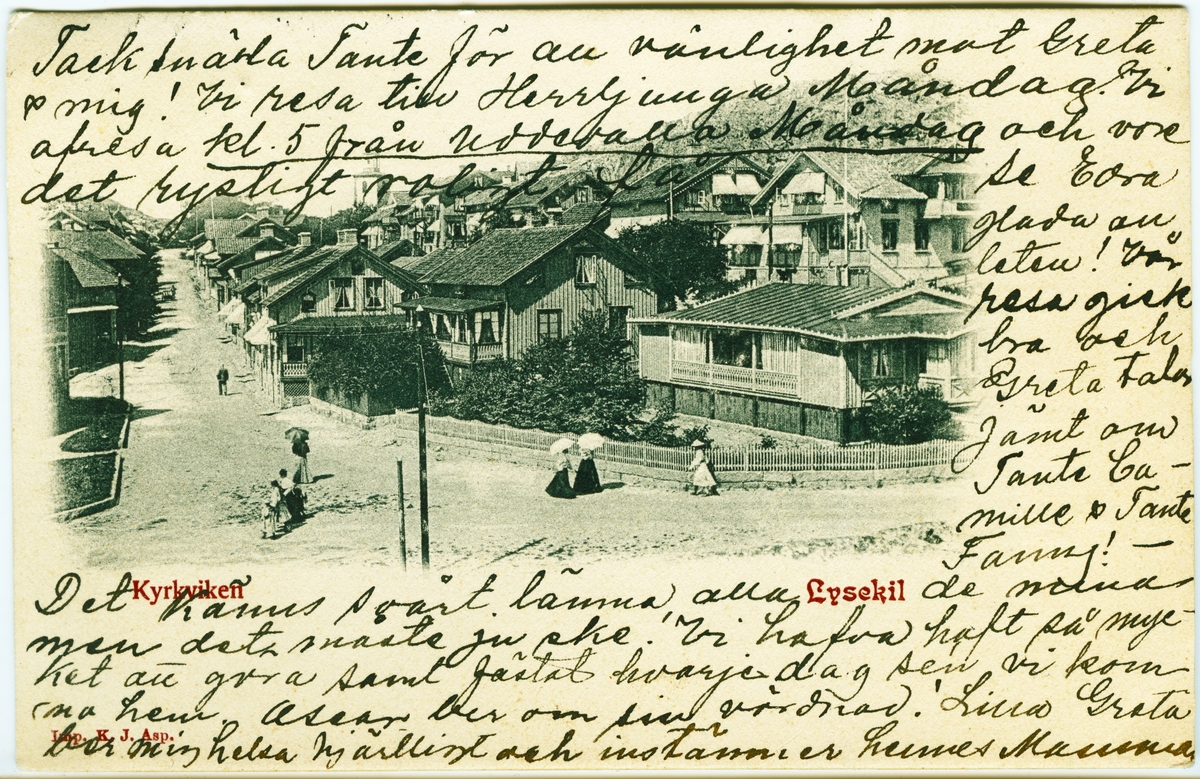 Tack snälla Tante för all vänlighet mot Greta
& mig! Vi resa till Herrljunga Måndag. Vi
afresa kl. 5 från Uddevalla Måndag och vore
det rysligt roligt få
se Edra
glada an
leten! Vår
resa gick
bra och
Greta talar
jämt om
Tante Ca-
mille & Tante
Fanny! —
Kyrkviken
Lysekil
Det känns svårt lämna alla de mina
men det måste ju ske! Vi hafva haft så myc-
ket att göra samt fästat hvarje dag sen vi kom
mo hem. Oscar ber om sin vördnad! Lilla Greta
ber mig helsa hjärtligt och instämmer hennes Mamma
Imp. K. J. Asp.